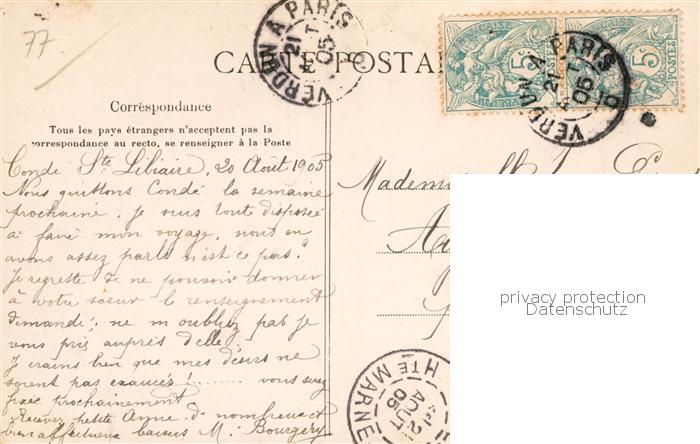 77
CARTE POSTA
VERDUN A PARIS
21
AOUT
05
RÉPUBLIQUE FRANÇAISE
5c
POSTES
5c
POSTES
VERDUN A PARIS
21
05
Correspondance
Tous les pays étrangers n'acceptent pas la
correspondance au recto, se renseigner à la Poste
Condé Ste Libiaire, 20 Août 1905
Nous quittons Condé la semaine
prochaine, je suis tout disposée
à faire mon voyage, nous en
avons assez parlé n'est ce pas?
Je regrette de ne pouvoir donner
à votre soeur le renseignement
demandé; ne m'oubliez pas je
vous prie auprès d'elle.
Je crains bien que mes désirs ne
soient pas exaucés! ........ vous serez
fixée prochainement
Recevez petite Anne de nombreux et
bien affectueux baisers M. Bourgery
Mademoiselle
privacy protection
Datenschutz
HTE MARNE
21
AOUT
05